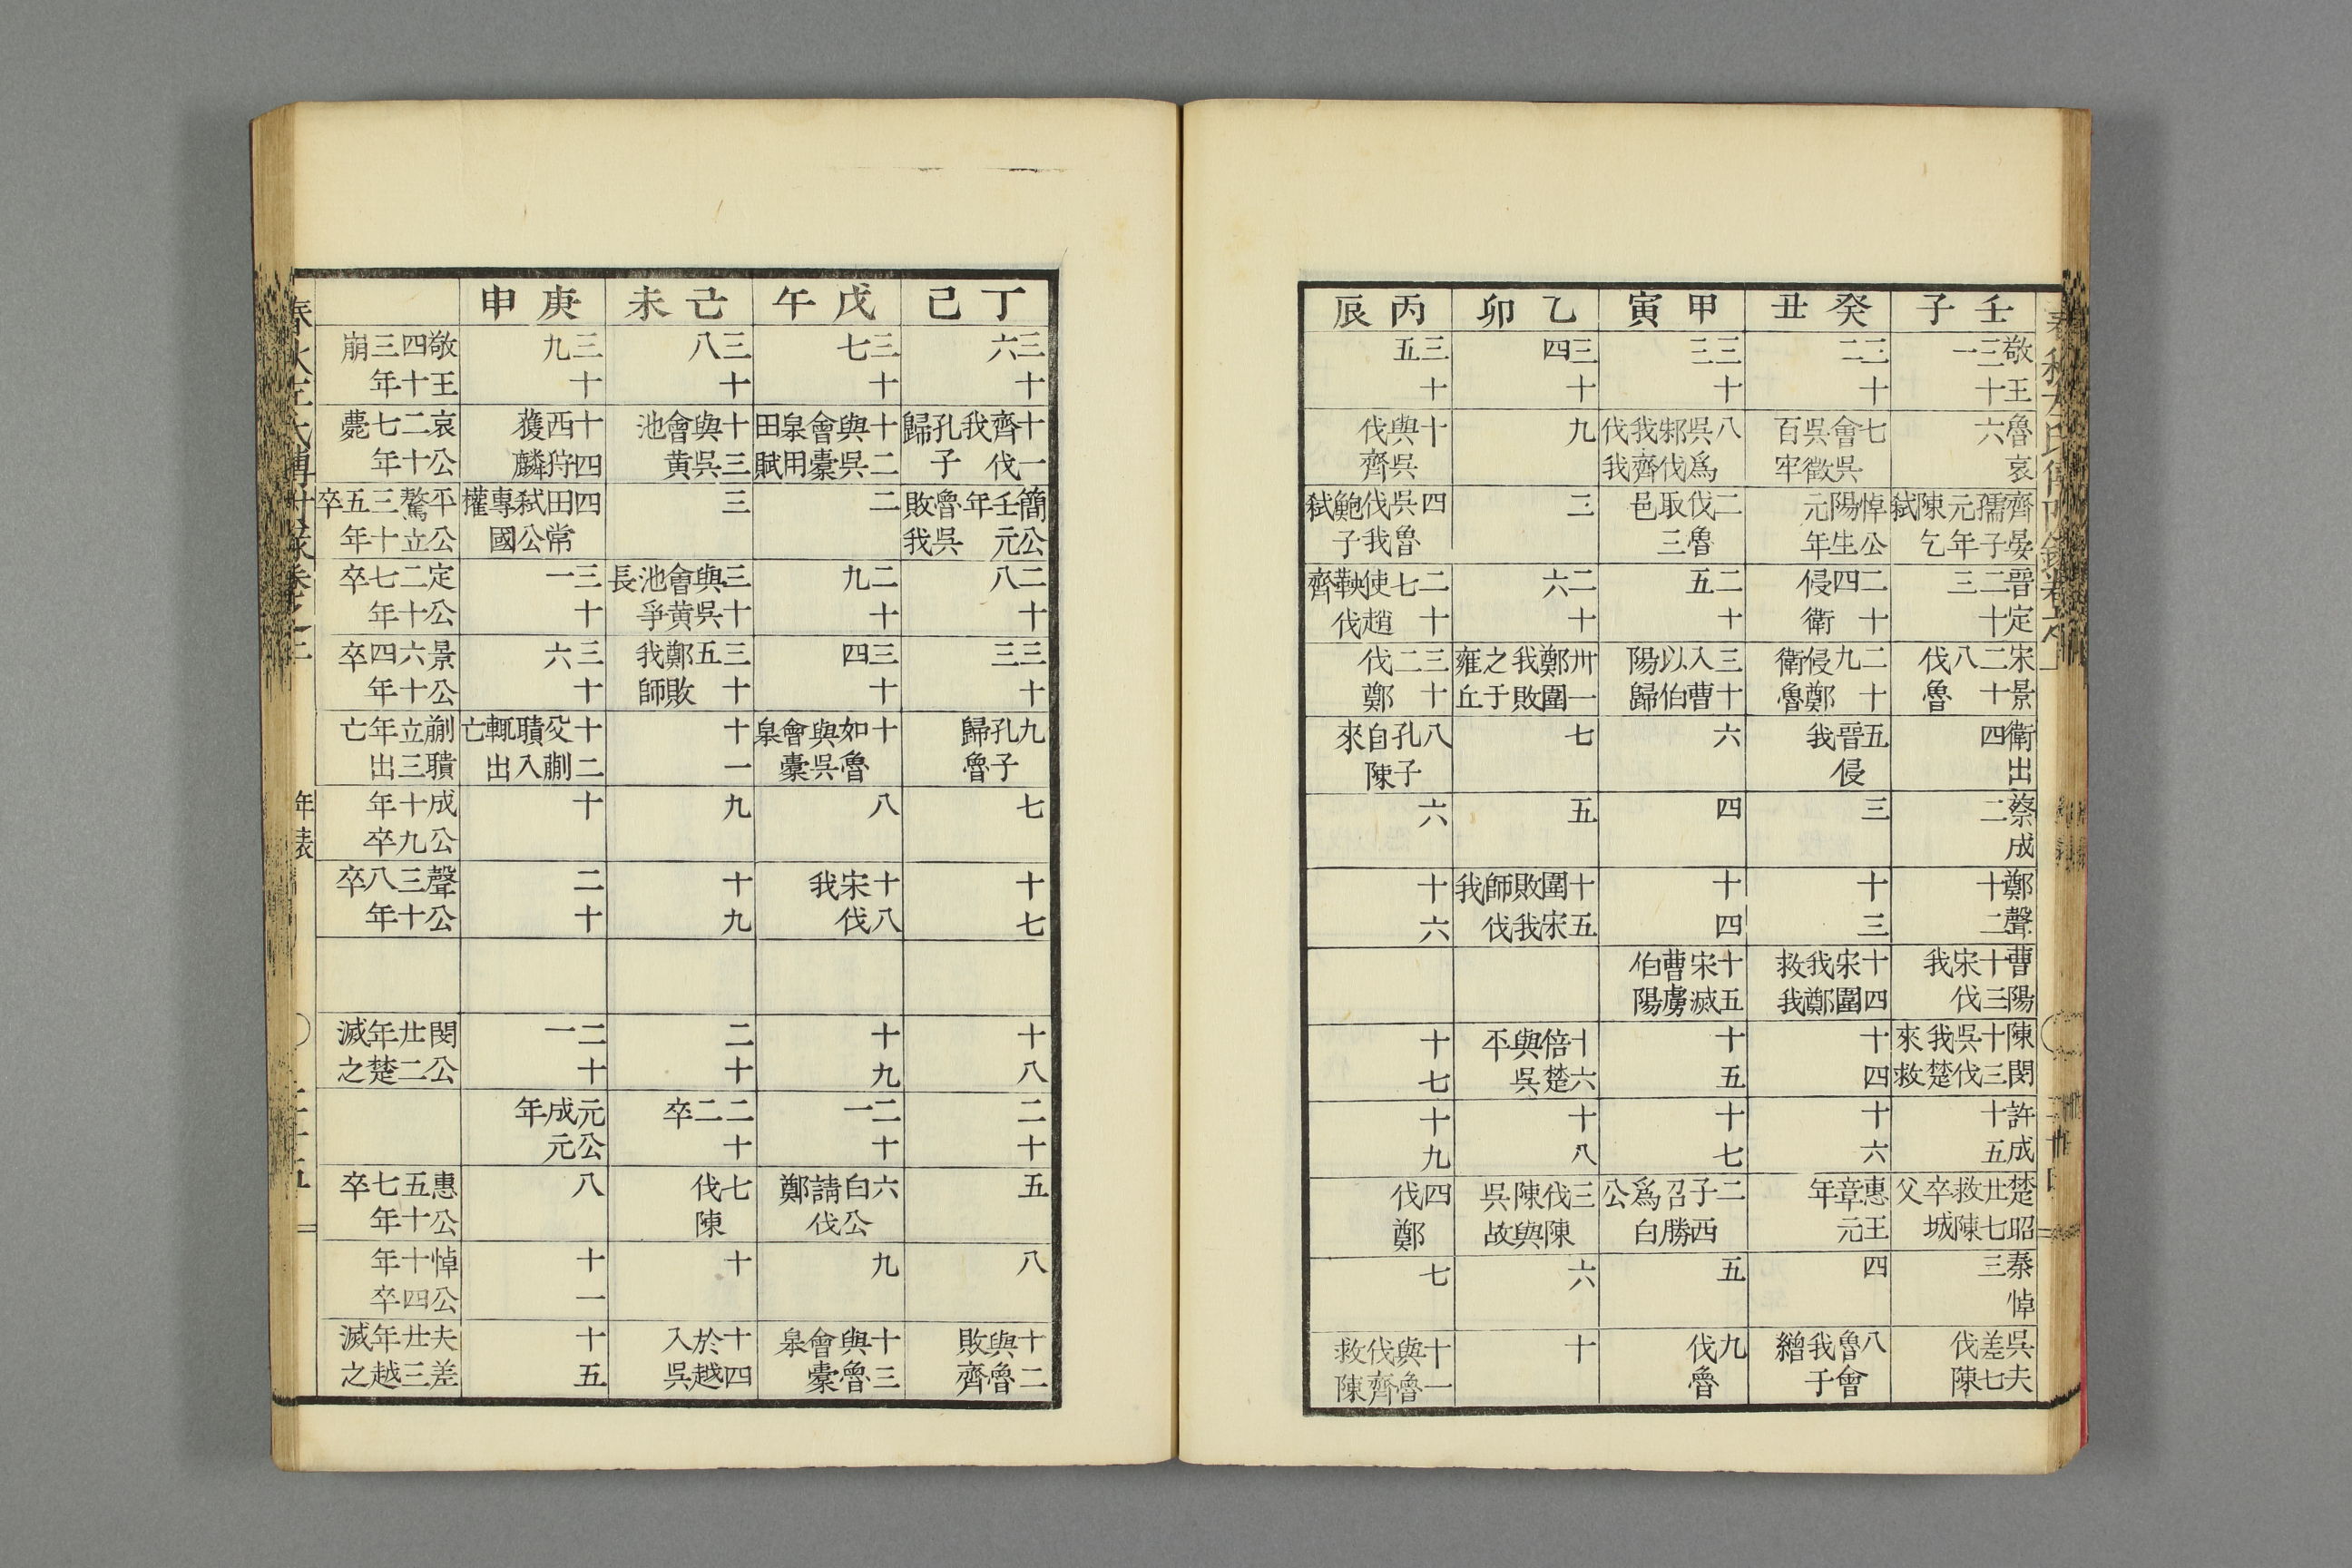 壬子
敬王三十一
魯哀六
齊晏孺子元年陳乞弑
晉定二十三
宋景二十八伐魯
衛出四
蔡成二
鄭聲十二
曹陽十三宋伐我
陳閔十三吳伐我楚來救
許成十五
楚昭廿七救陳卒城父
秦悼三
吳夫差七伐陳
癸丑
三十二
七會吳吳徵百牢
悼公陽生元年
二十四侵衛
二十九侵鄭衛魯
五晉侵我
三
十三
十四宋圍我鄭救我
十四
十六
惠王章元年
四
八魯會我于繒
甲寅
三十三
八吳爲邾伐我齊伐我
二伐魯取三邑
二十五
三十入曹以伯陽歸
六
四
十四
十五宋滅曹虜伯陽
十五
十七
二子西召勝爲白公
五
九伐魯
乙卯
三十四
九
三
二十六
卅一鄭圍我敗之于雍丘
七
五
十五圍宋敗我師伐我
十六倍楚與吳平
十八
三伐陳陳與吳故
六
十
丙辰
三十五
十與吳伐齊
四吳魯伐我鮑子弑
二十七使趙鞅伐齊
三十二伐鄭
八孔子自陳來
六
十六
十七
十九
四伐鄭
七
十一與魯伐齊救陳
丁己
三十六
十一齊伐我孔子歸
簡公壬元年魯吳敗我
二十八
三十三
九孔子歸魯
七
十七
十八
二十
五
八
十二與魯敗齊
戊午
三十七
十二與吳會橐臯用田賦
二
二十九
三十四
十如魯與吳會橐臯
八
十八宋伐我
十九
二十一
六白公請伐鄭
九
十三與魯會橐臯
己未
三十八
十三與吳會黄池
三
三十與吳會黄池爭長
三十五鄭敗我師
十一
九
十九
二十
二十二卒
七伐陳
十
十四於越入吳
庚申
三十九
十四西狩獲麟
四田常弑公專國權
三十一
三十六
十二父蒯聵入輒出亡
十
二十
二十一
元公成元年
八
十一
十五
敬王四十三年崩
哀公二十七年薨
平公驁立三十五年卒
定公二十七年卒
景公六十四年卒
蒯聵立三年出亡
成公十九年卒
聲公三十八年卒
閔公廿二年楚滅之
惠公五十七年卒
悼公十四年卒
夫差廿三年越滅之
春秋左氏傳附錄卷之二
年表
二十五